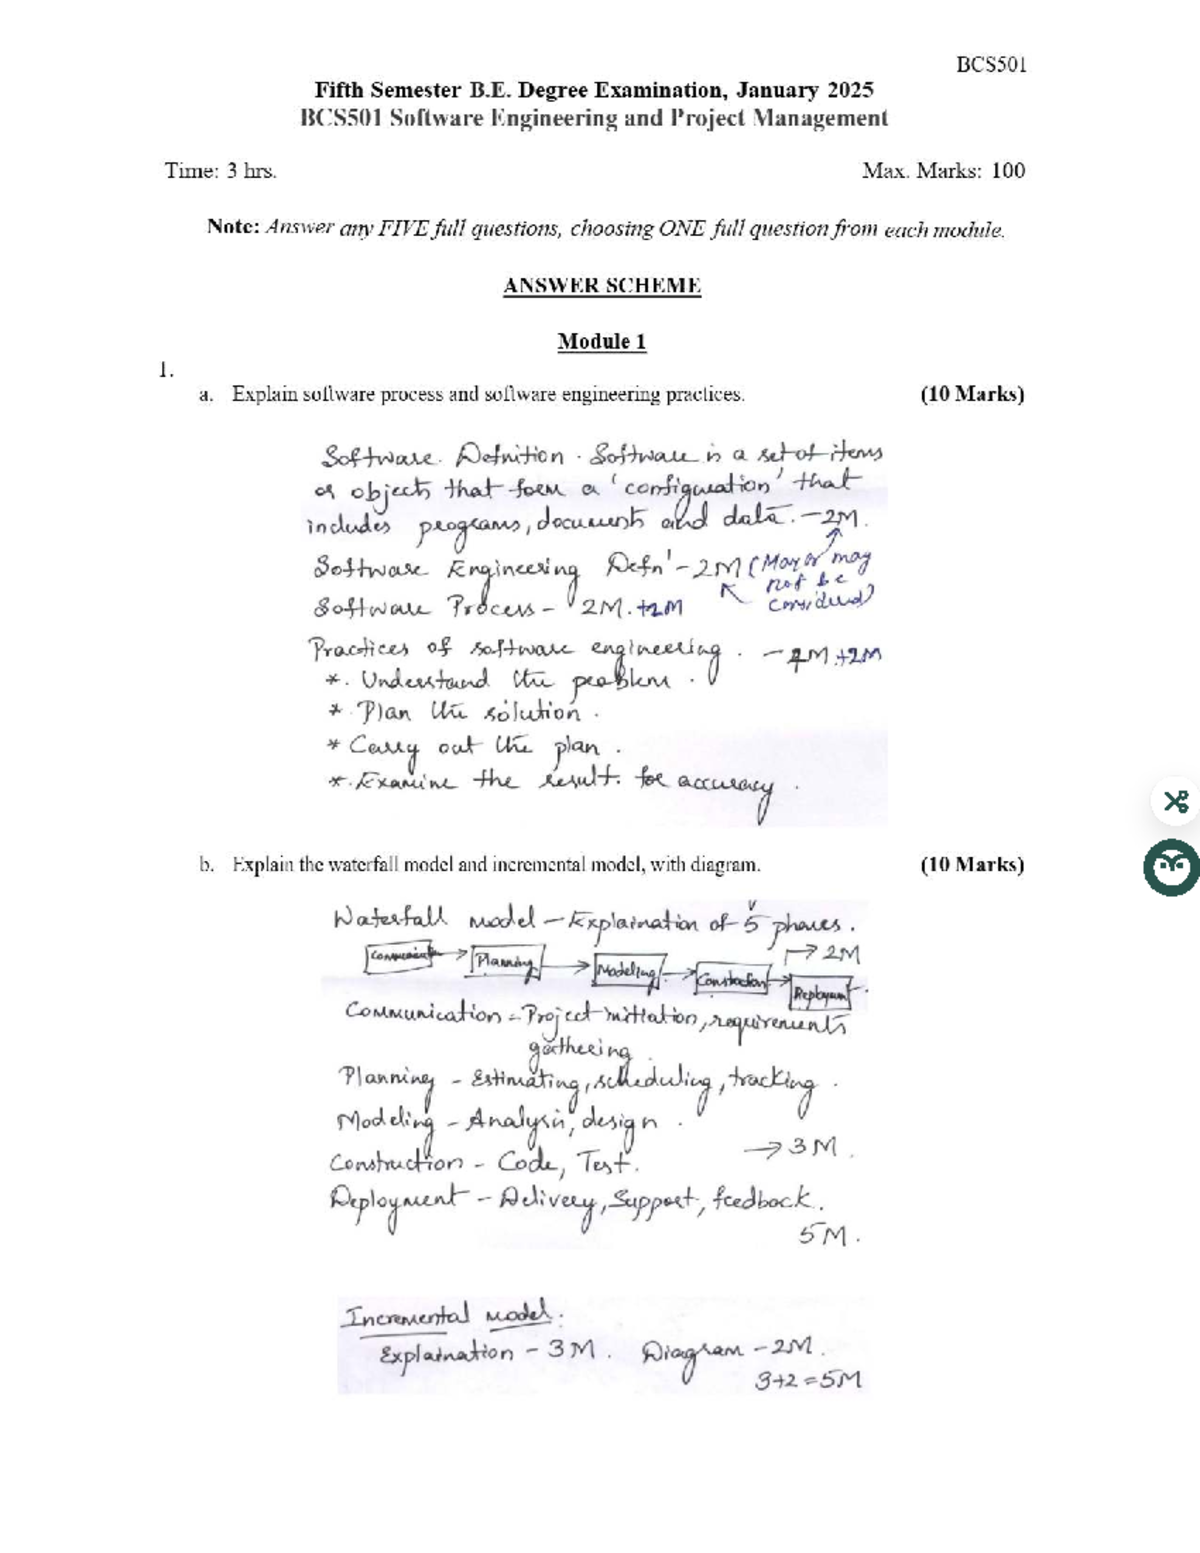 BCS501
Fifth Semester B.E. Degree Examination, January 2025
BCS501 Software Engineering and Project Management
Time: 3 hrs. Max. Marks: 100
Note: Answer any FIVE full questions, choosing ONE full question from each module.
ANSWER SCHEME
Module 1
1.
a. Explain software process and software engineering practices. (10 Marks)
Software Definition. Software is a set of items
or objects that form a 'configuration' that
includes programs, documents and data. - 2M.
Software Engineering Defn' - 2M (May or may
not be
Software Process - 2M. +2M considered)
Practices of software engineering. - 4M +2M
*. Understand the problem.
*. Plan the solution.
* Carry out the plan.
*. Examine the result for accuracy.
b. Explain the waterfall model and incremental model, with diagram. (10 Marks)
Waterfall model - Explaination of 5 phases.
→ 2M
Planning → Modeling → Construction →
Communication - Project initiation, requirements
gathering.
Planning - Estimating, scheduling, tracking.
Modeling - Analysis, design.
→ 3M.
Construction - Code, Test.
Deployment - Delivery, Support, feedback.
5M.
Incremental model:
Explaination - 3M. Diagram - 2M.
3+2=5M